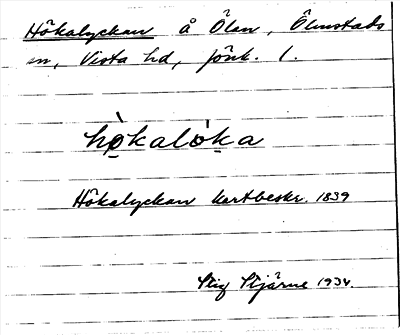 Hökalyckan å Ölan, Ölmstads
sn, Vista hd, Jönk. l.
hö̀kalǫ̀ka
Hökalyckan kartbeskr. 1839
Stig Stjärne 1934.